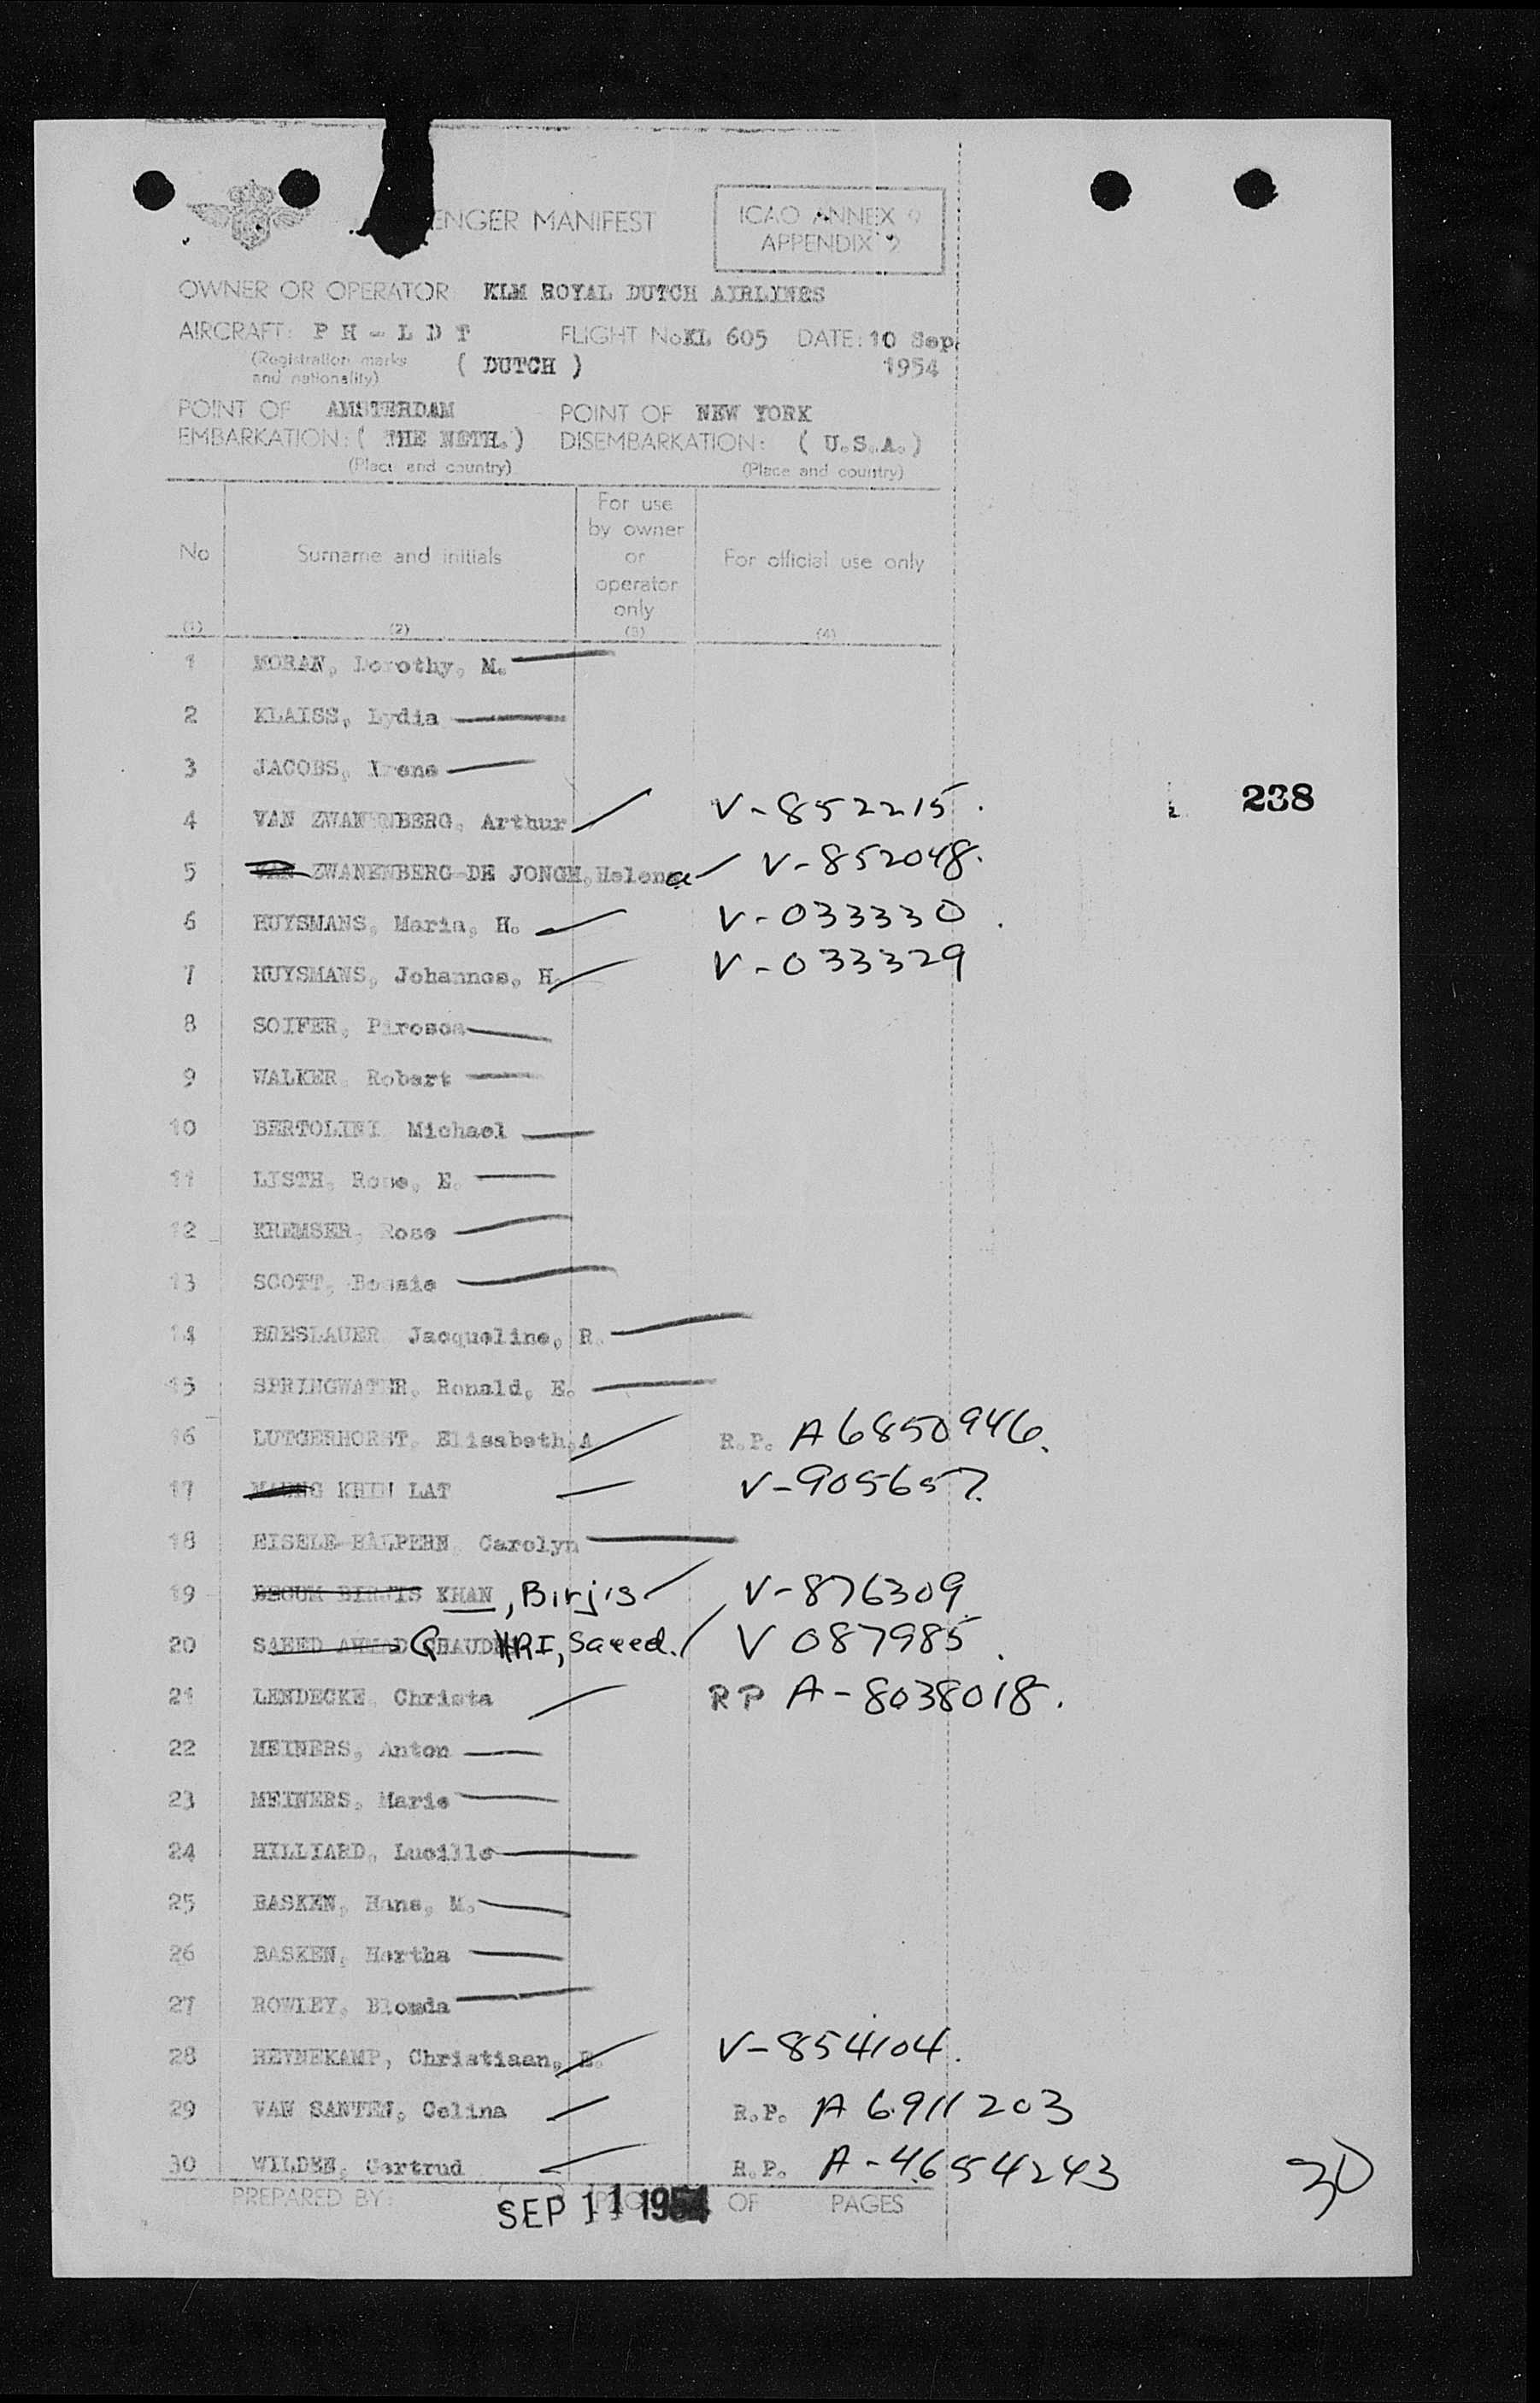 ENGER MANIFEST
ICAO ANNEX 9
APPENDIX 9
OWNER OR OPERATOR: KLM ROYAL DUTCH AIRLINES
AIRCRAFT: P H - L D T FLIGHT No KL 605 DATE: 10 Sep.
(Registration marks and nationality) ( DUTCH ) 1954
POINT OF EMBARKATION: AMSTERDAM ( THE NETH. ) POINT OF DISEMBARKATION: NEW YORK ( U.S.A. )
(Place and country) (Place and country)
No Surname and initials For use by owner or operator only For official use only
(1) (2) (3) (4)
1 MORAN, Dorothy, M.
2 KLAISS, Lydia
3 JACOBS, Irene
4 VAN ZWANENBERG, Arthur V-852215.
238
5 VAN ZWANENBERG-DE JONGH, Helena V-852048.
6 HUYSMANS, Maria, H. V-033330.
7 HUYSMANS, Johannes, H. V-033329
8 SOIFER, Pirosca
9 WALKER, Robert
10 BERTOLINI Michael
11 LISTH, Rose, E.
12 KREMSER, Rose
13 SCOTT, Bessie
14 BRESLAUER Jacqueline, R.
15 SPRINGWATER, Ronald, E.
16 LUTGERHORST, Elisabeth, A R.P. A6850946.
17 MAUNG KHIN LAT V-905657.
18 EISELE-HALPERN, Carolyn
19 BEGUM BIRJIS KHAN, Birjis V-876309
20 SAEED AHMAD CHAUDHRI, Saeed. V 087985.
21 LENDECKE, Christa RP A-8038018.
22 MEINERS, Anton
23 MEINERS, Marie
24 HILLIARD, Lucille
25 BASKEN, Hans, M.
26 BASKEN, Hertha
27 ROWLEY, Blonda
28 HEYNEKAMP, Christiaan, E. V-854104.
29 VAN SANTEN, Celina R.P. A 6911203
30 WILDEN, Gertrud R.P. A-4654243
30
PREPARED BY: OF PAGES
SEP 11 1954